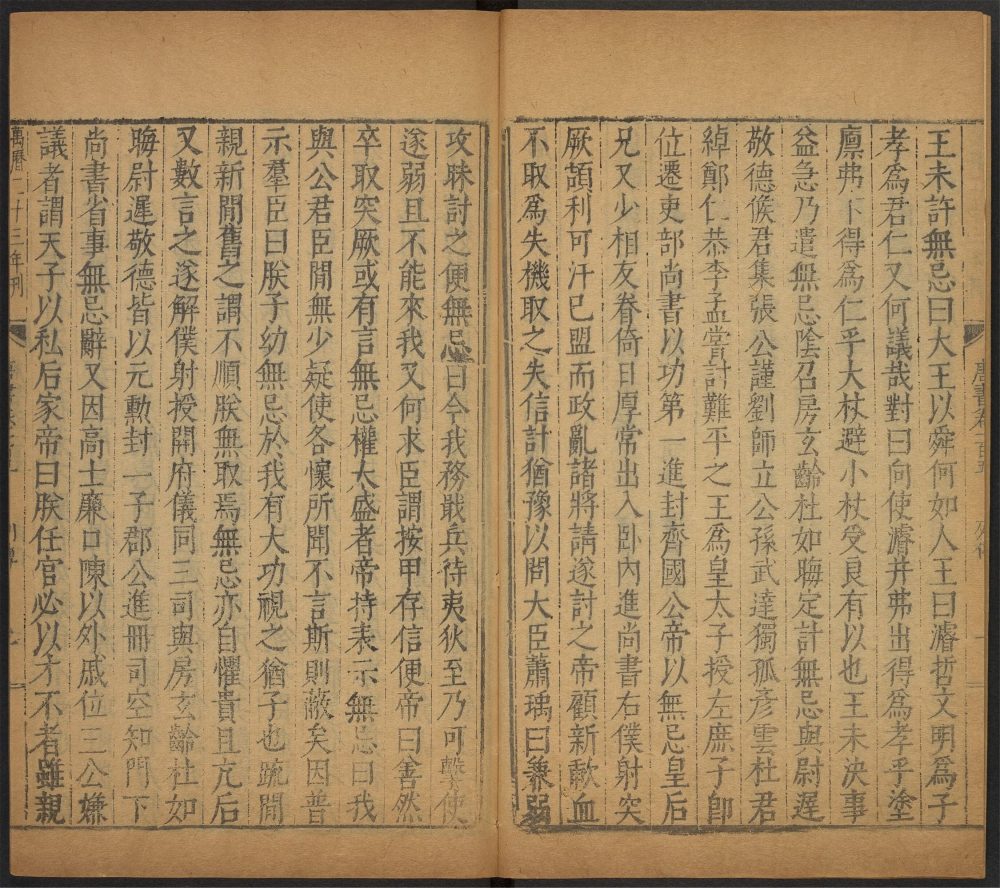 王未許無忌曰大王以舜何如人王曰濬哲文明爲子
孝爲君仁又何議哉對曰向使濬井弗出得爲孝乎塗
廪弗下得爲仁乎大杖避小杖受良有以也王未決事
益急乃遣無忌陰召房玄齡杜如晦定計無忌與尉遲
敬德侯君集張公謹劉師立公孫武達獨孤彥雲杜君
綽鄭仁恭李孟嘗討難平之王爲皇太子授左庶子即
位遷吏部尚書以功第一進封齊國公帝以無忌皇后
兄又少相友眷倚日厚常出入卧內進尚書右僕射突
厥頡利可汗已盟而政亂諸將請遂討之帝顧新歃血
不取爲失機取之失信計猶豫以問大臣蕭瑀曰兼弱
攻昧討之便無忌曰今我務戢兵待夷狄至乃可擊使
遂弱且不能來我又何求臣謂按甲存信便帝曰善然
卒取突厥或有言無忌權太盛者帝持表示無忌曰我
與公君臣間無少疑使各懷所聞不言斯則蔽矣因普
示羣臣曰朕子幼無忌於我有大功視之猶子也疏間
親新間舊之謂不順朕無取焉無忌亦自懼貴且亢后
又數言之遂解僕射授開府儀同三司與房玄齡杜如
晦尉遲敬德皆以元勳封一子郡公進冊司空知門下
尚書省事無忌辭又因高士廉口陳以外戚位三公嫌
議者謂天子以私后家帝曰朕任官必以才不者雖親
萬曆二十三年刊